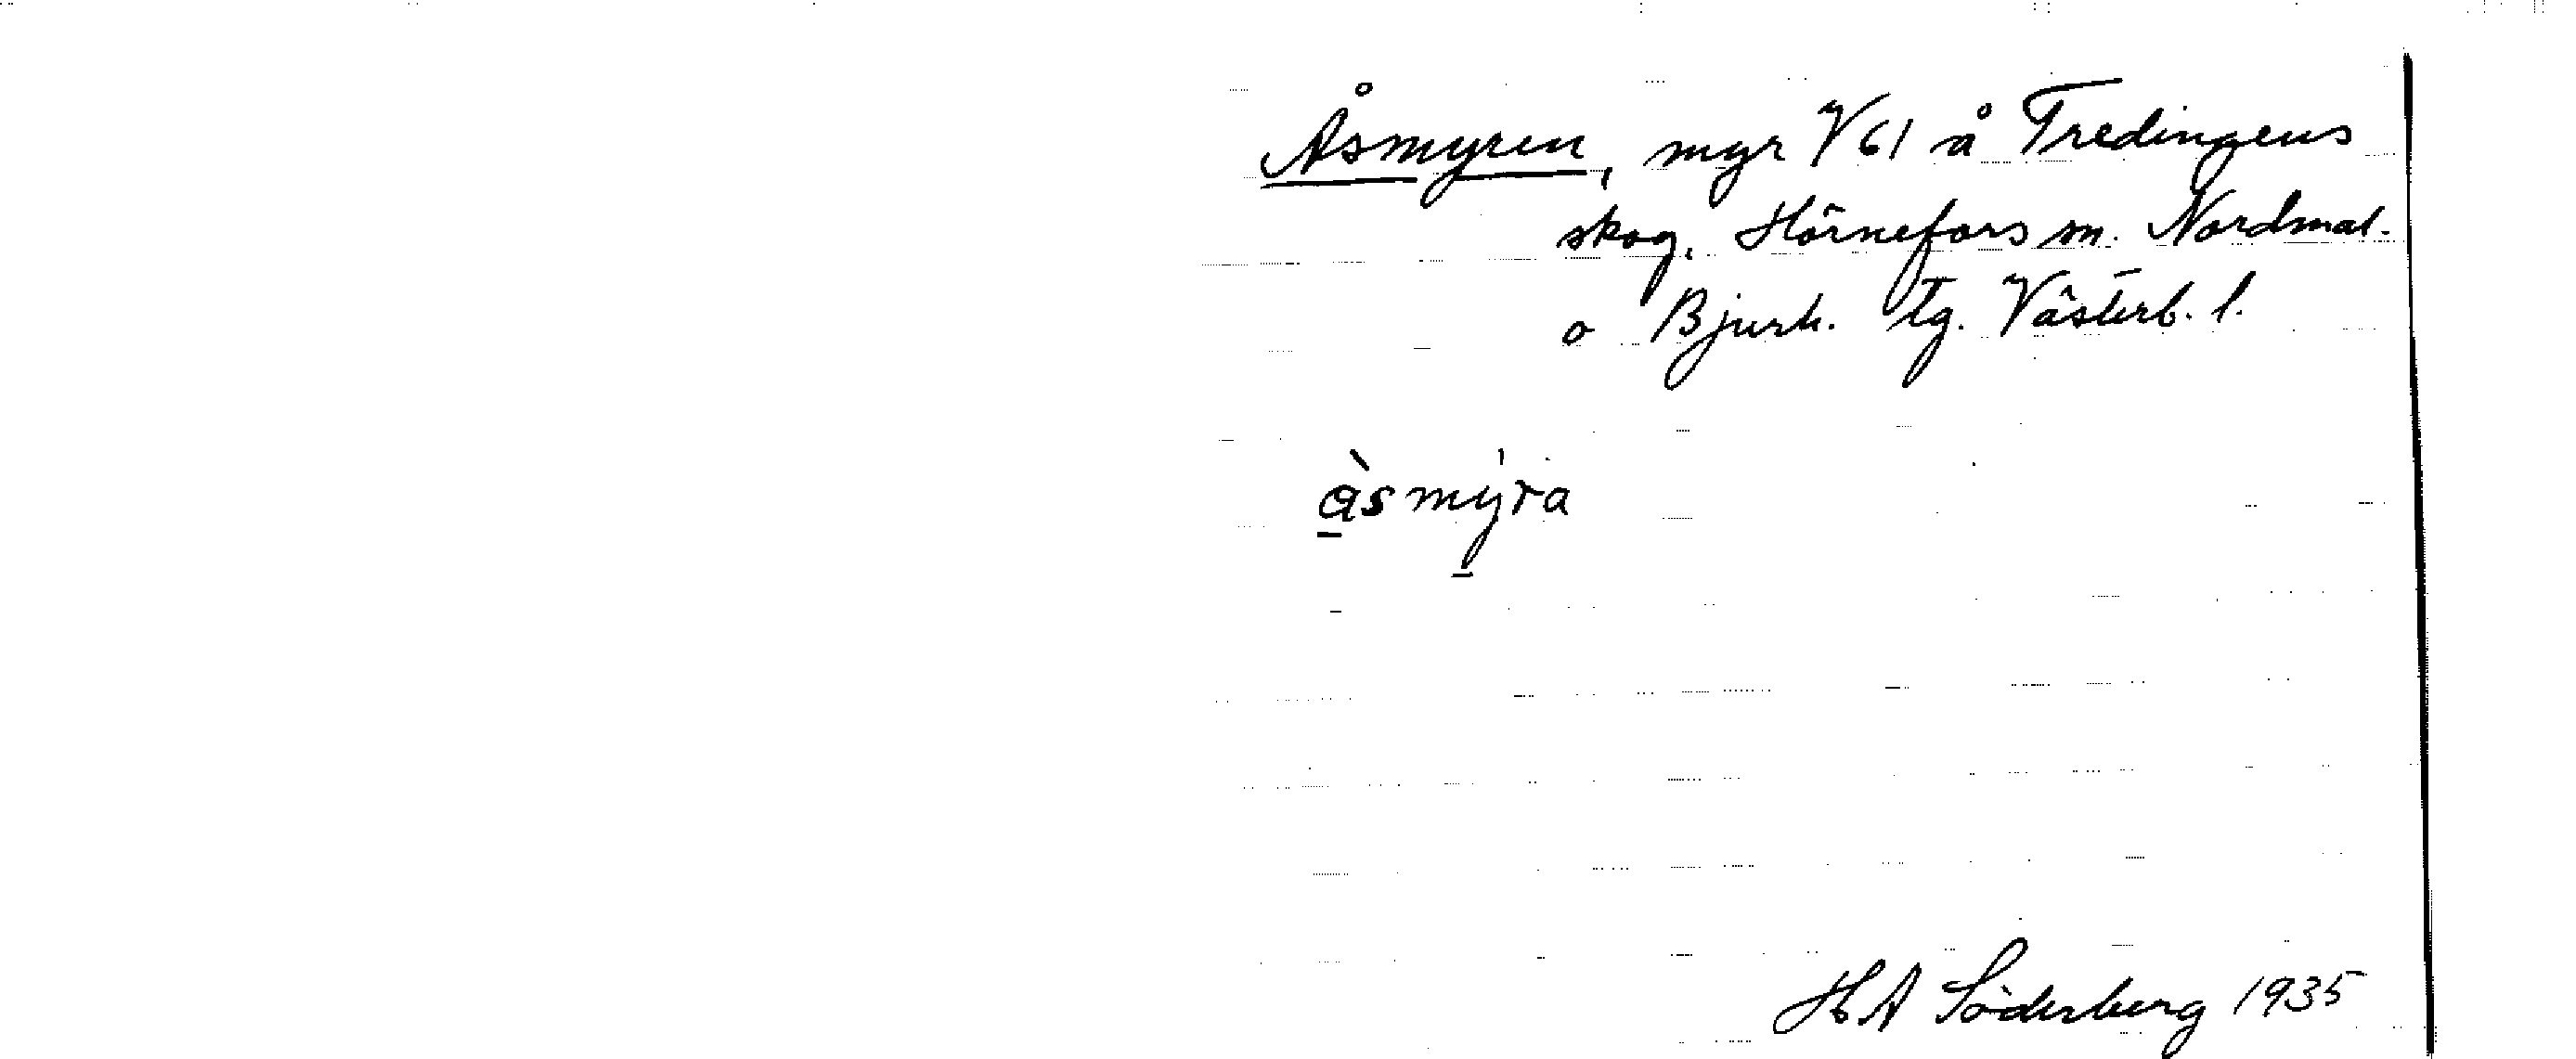 Åsmyren, myr V 61 å Tredingens
skog, Hörnefors sn. Nordmal.
o Bjurh. tg. Västerb. l.
à̱smý̱ra
H A Söderberg 1935